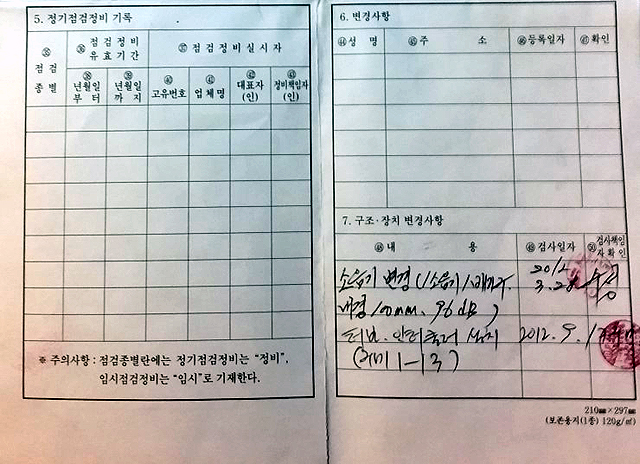 5. 정기점검정비 기록
㉟ 점검종별
㊱ 점검정비 유효기간
㊲ 점검정비실시자
㊳ 년월일 부터
㊴ 년월일 까지
㊵ 고유번호
㊶ 업체명
㊷ 대표자 (인)
㊸ 정비책임자 (인)
※ 주의사항 : 점검종별란에는 정기점검정비는 “정비”,
임시점검정비는 “임시”로 기재한다.
6. 변경사항
㊹ 성 명
㊺ 주 소
㊻ 등록일자
㊼ 확인
7. 구조·장치 변경사항
㊽ 내 용
㊾ 검사일자
㊿ 검사책임자확인
소음기 변경 (1소음기 1배기구, 2012. 3. 28
내경 100mm, 96dB)
터보. 인터쿨러 설치 2012. 9. 17
210㎜×297㎜
(보존용지(1종) 120g/㎡)